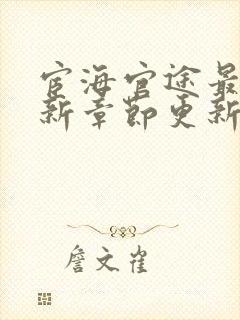 宦海官途最
新章节更新
詹文雀